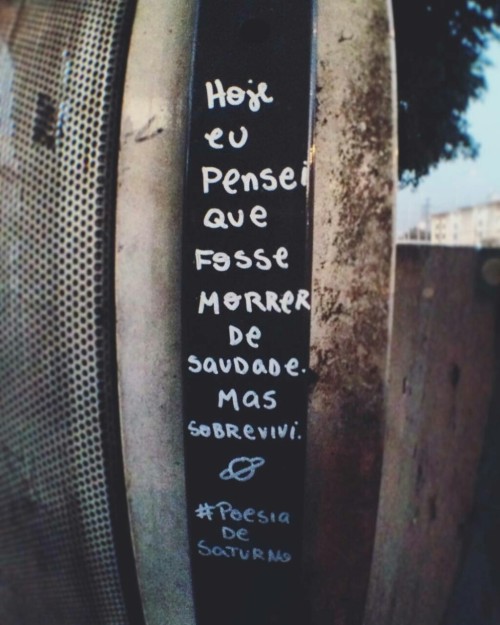 Hoje
eu
Pensei
que
Fosse
MORRER
De
SAUDADE.
MAS
SOBREVIVI.
#Poesia
De
SATURNO